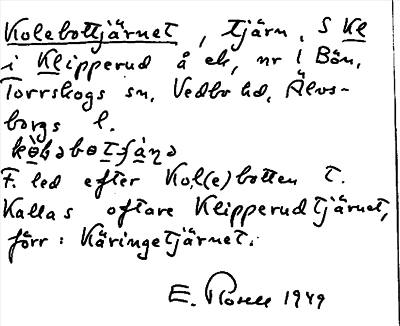 Kolebottjärnet, tjärn, S Kl
i Klipperud å ek, nr 1 Bön,
Torrskogs sn, Vedbo hd, Älvs-
borgs l.
F. led efter Kol(e)botten t.
Kallas oftare Klipperudtjärnet,
förr: Käringetjärnet.
E. Rosell 1949